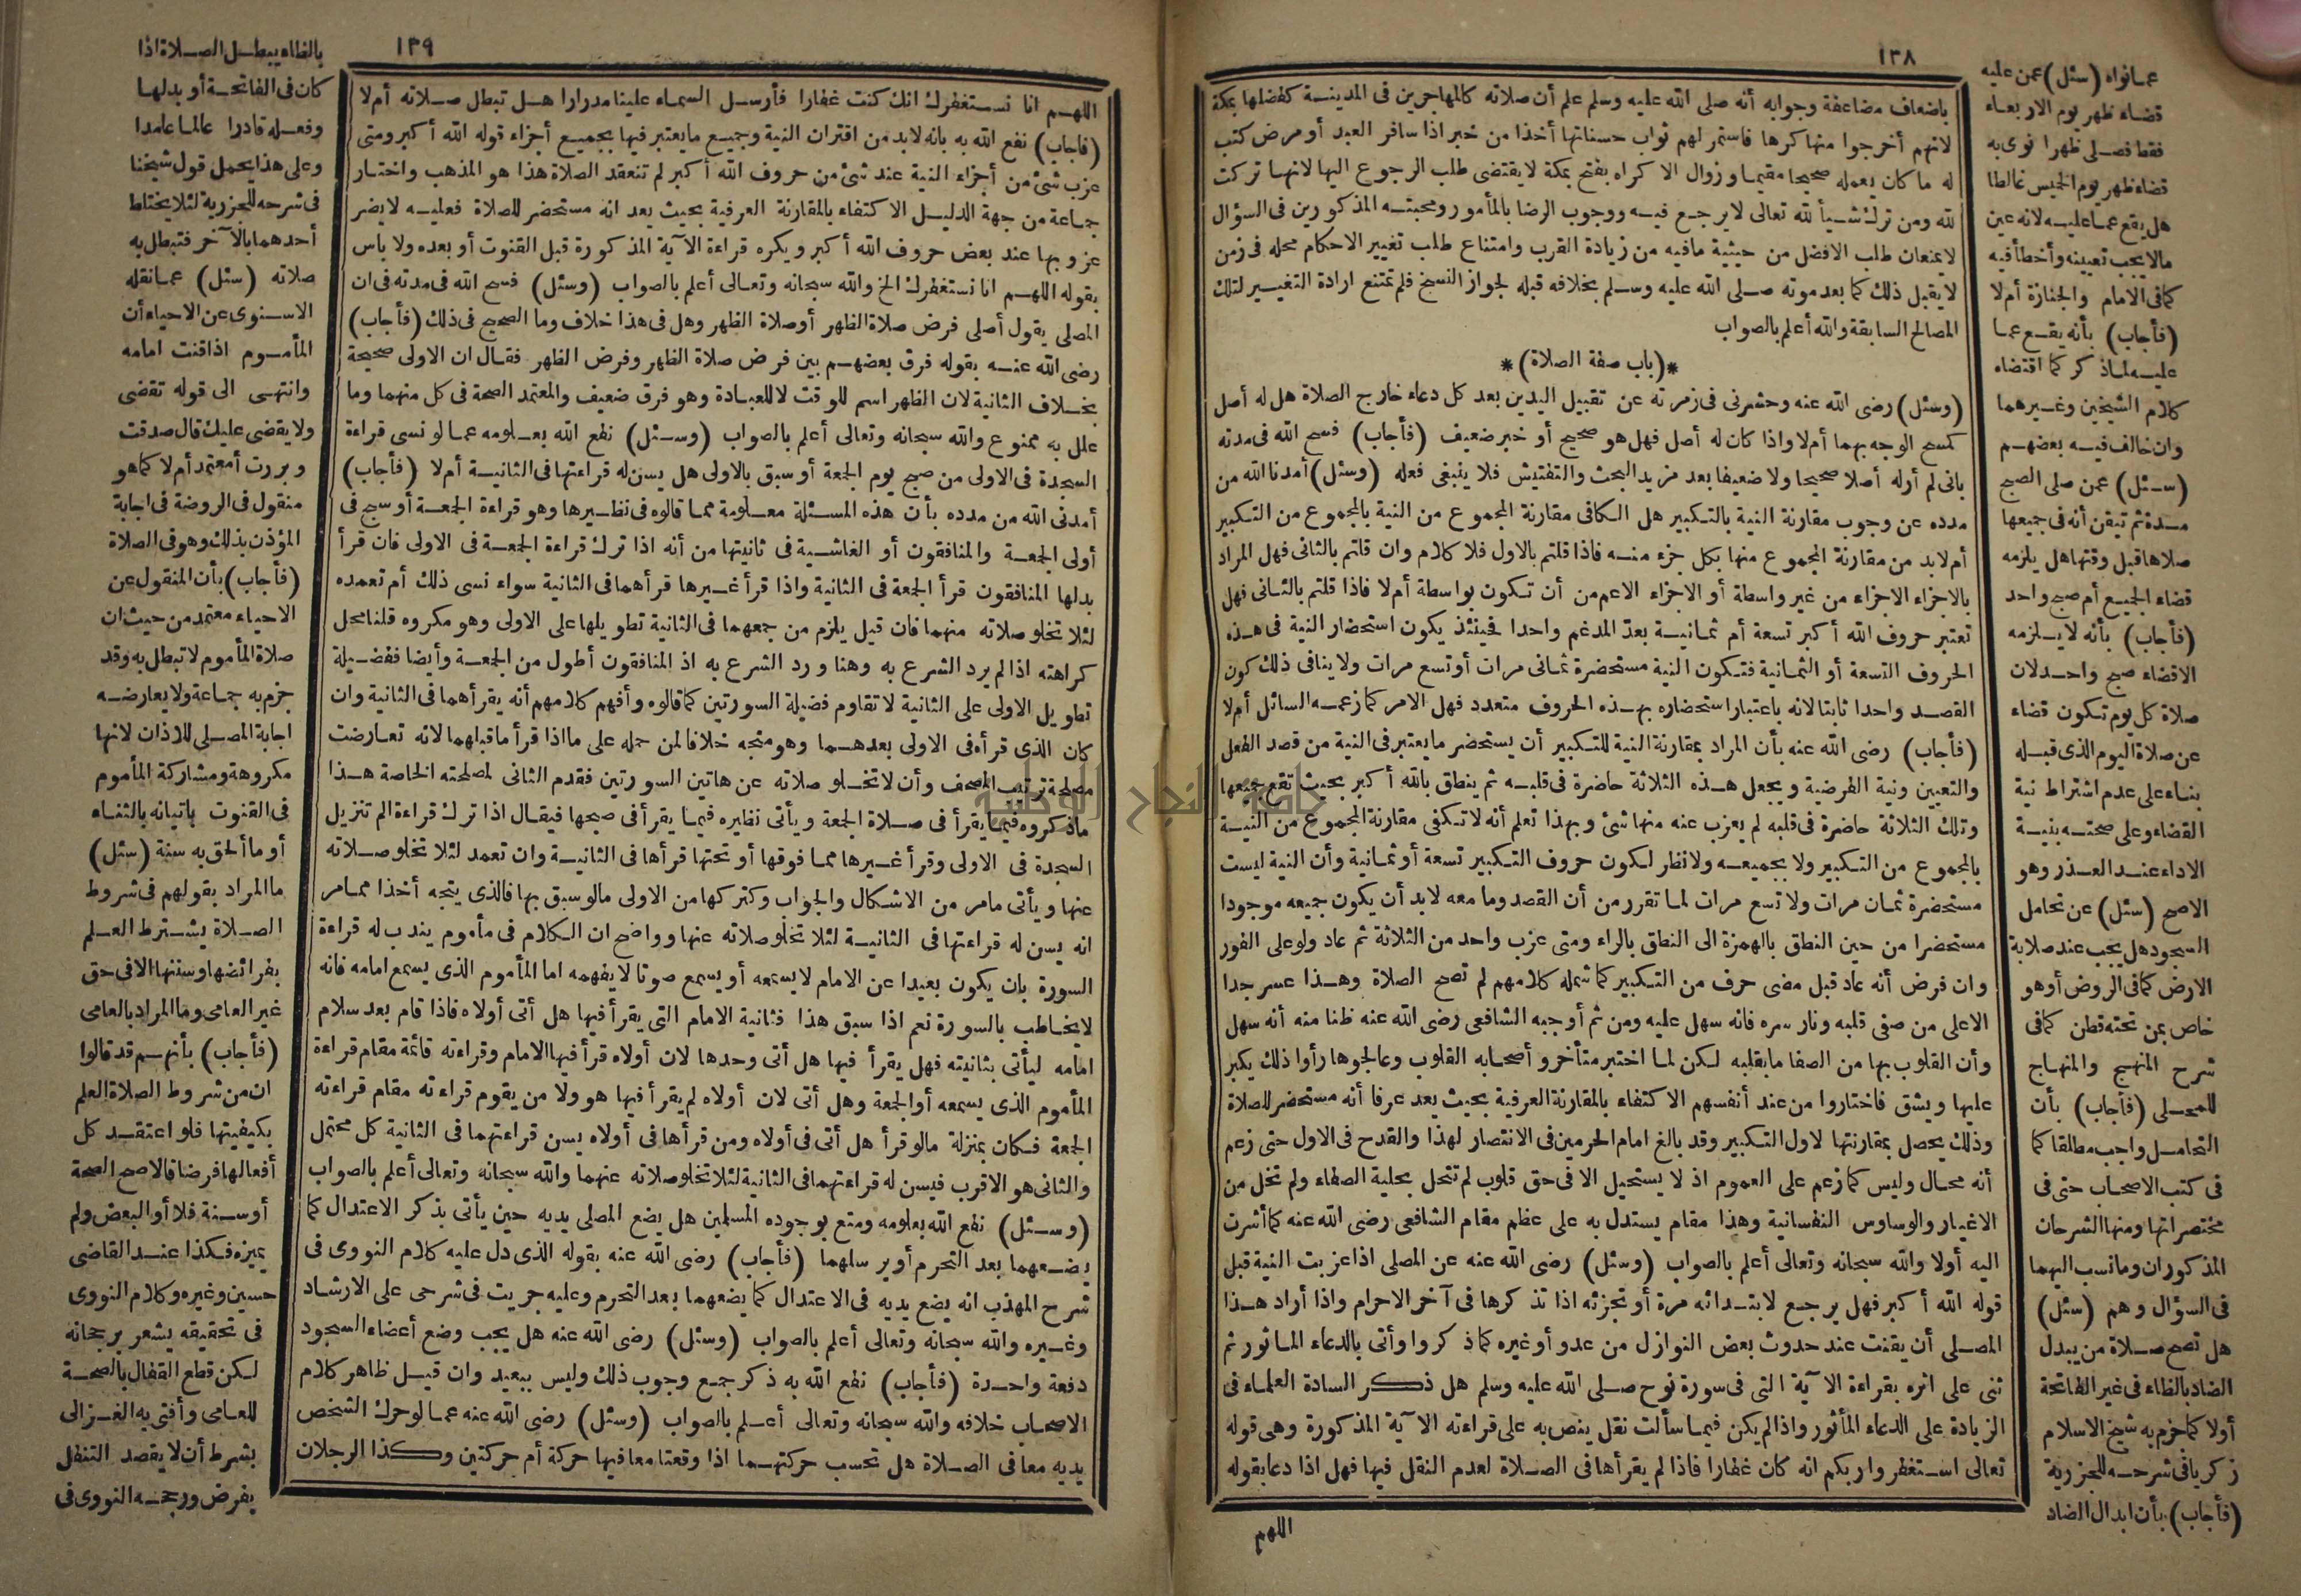 ١٣٨
باضعاف مضاعفة وجوابه أنه صلى الله عليه وسلم علم أن صلاته كالمهاجرين فى المدينة كفضلها بمكة
لانهم أخرجوا منها كرها فاستمر لهم ثواب حسناتها أخذا من خبر اذا سافر العبد أو مرض كتب
له ما كان يعمله صحيحا مقيما وزوال الاكراه بفتح مكة لا يقتضى طلب الرجوع اليها لانها تركت
لله ومن ترك شيأ لله تعالى لا يرجع فيه ووجوب الرضا بالمأمور ومحبته المذكورين فى السؤال
لا يمنعان طلب الافضل من حيثية ما فيه من زيادة القرب وامتناع طلب تغيير الاحكام محله فى زمن
لا يقبل ذلك كما بعد موته صلى الله عليه وسلم بخلافه قبله لجواز النسخ فلم تمتنع ارادة التغيير لتلك
المصالح السابقة والله أعلم بالصواب
*(باب صفة الصلاة)*
(وسئل) رضى الله عنه وحشرنى فى زمرته عن تقبيل اليدين بعد كل دعاء خارج الصلاة هل له أصل
كمسح الوجه بهما أم لا واذا كان له أصل فهل هو صحيح أو خبر ضعيف (فأجاب) فسح الله فى مدته
بانى لم أر له أصلا صحيحا ولا ضعيفا بعد مزيد البحث والتفتيش فلا ينبغى فعله (وسئل) أمدنا الله من
مدده عن وجوب مقارنة النية بالتكبير هل الكافى مقارنة المجموع من النية بالمجموع من التكبير
أم لا بد من مقارنة المجموع منها بكل جزء منه فاذا قلتم بالاول فلا كلام وان قلتم بالثانى فهل المراد
بالاجزاء الاجزاء من غير واسطة أو الاجزاء الاعم من أن تكون بواسطة أم لا فاذا قلتم بالثانى فهل
تعتبر حروف الله أكبر تسعة أم ثمانية بعد المدغم واحدا فحينئذ يكون استحضار النية فى هذه
الحروف التسعة أو الثمانية فتكون النية مستحضرة ثمانى مرات أو تسع مرات ولا ينافى ذلك كون
القصد واحدا ثابتا لانه باعتبار استحضاره بهذه الحروف متعدد فهل الامر كما زعمه السائل أم لا
(فأجاب) رضى الله عنه بأن المراد بمقارنة النية للتكبير أن يستحضر ما يعتبر فى النية من قصد الفعل
والتعيين ونية الفرضية ويجعل هذه الثلاثة حاضرة فى قلبه ثم ينطق بالله أكبر بحيث تقع جميعها
وتلك الثلاثة حاضرة فى قلبه لم يعزب عنه منها شئ وبهذا تعلم أنه لا تكفى مقارنة المجموع من النية
بالمجموع من التكبير ولا بجميعه ولا نظر لكون حروف التكبير تسعة أو ثمانية وأن النية ليست
مستحضرة ثمان مرات ولا تسع مرات لما تقرر من أن القصد وما معه لا بد أن يكون جميعه موجودا
مستحضرا من حين النطق بالهمزة الى النطق بالراء ومتى عزب واحد من الثلاثة ثم عاد ولو على الفور
وان فرض أنه عاد قبل مضى حرف من التكبير كما شمله كلامهم لم تصح الصلاة وهذا عسر جدا
الا على من صفى قلبه ونار سره فانه سهل عليه ومن ثم أوجبه الشافعى رضى الله عنه ظنا منه أنه سهل
وأن القلوب بها من الصفا ما بقلبه لكن لما اختبر متأخرو أصحابه القلوب وعالجوها رأوا ذلك يكبر
عليها ويشق فاختاروا من عند أنفسهم الاكتفاء بالمقارنة العرفية بحيث يعد عرفا أنه مستحضر للصلاة
وذلك يحصل بمقارنتها لاول التكبير وقد بالغ امام الحرمين فى الانتصار لهذا والقدح فى الاول حتى زعم
أنه محال وليس كما زعم على العموم اذ لا يستحيل الا فى حق قلوب لم تتحل بحلية الصفاء ولم تخل من
الاغيار والوساوس النفسانية وهذا مقام يستدل به على عظم مقام الشافعى رضى الله عنه كما أشرت
اليه أولا والله سبحانه وتعالى أعلم بالصواب (وسئل) رضى الله عنه عن المصلى اذا عزبت النية قبل
قوله الله أكبر فهل يرجع لابتدائه مرة أو تجزئه اذا تذكرها فى آخر الاحرام واذا أراد هذا
المصلى أن يقنت عند حدوث بعض النوازل من عدو أو غيره كما ذكروا وأتى بالدعاء الماثور ثم
ثنى على اثره بقراءة الآية التى فى سورة نوح صلى الله عليه وسلم هل ذكر السادة العلماء فى
الزيادة على الدعاء المأثور واذا لم يكن فيما سألت نقل ينص به على قراءته الآية المذكورة وهى قوله
تعالى استغفروا ربكم انه كان غفارا فاذا لم يقرأها فى الصلاة لعدم النقل فيها فهل اذا دعا بقوله
اللهم
عما نواه (سئل) عمن عليه
قضاء ظهر يوم الاربعاء
فقط فصلى ظهرا نوى به
قضاء ظهر يوم الخميس غالطا
هل يقع عما عليه لانه عين
ما لا يجب تعيينه وأخطأ فيه
كما فى الامام والجنازة أم لا
(فأجاب) بأنه يقع عما
عليه لما ذكر كما اقتضاه
كلام الشيخين وغيرهما
وان خالف فيه بعضهم
(سئل) عمن صلى الصبح
مدة ثم تيقن أنه فى جميعها
صلاها قبل وقتها هل يلزمه
قضاء الجميع أم صبح واحد
(فأجاب) بأنه لا يلزمه
الا قضاء صبح واحد لان
صلاة كل يوم تكون قضاء
عن صلاة اليوم الذى قبله
بناء على عدم اشتراط نية
القضاء وعلى صحته بنية
الاداء عند العذر وهو
الاصح (سئل) عن تحامل
السجود هل يجب عند صلابة
الارض كما فى الروض أو هو
خاص بمن تحته قطن كما فى
شرح المنهج والمنهاج
للمحلى (فأجاب) بأن
التحامل واجب مطلقا كما
فى كتب الاصحاب حتى فى
مختصراتها ومنها الشرحان
المذكوران وما نسب اليهما
فى السؤال وهم (سئل)
هل تصح صلاة من يبدل
الضاد بالظاء فى غير الفاتحة
أولا كما جزم به شيخ الاسلام
زكريا فى شرحه للجزرية
(فأجاب) بأن ابدال الضاد
١٣٩
اللهم انا نستغفرك انك كنت غفارا فأرسل السماء علينا مدرارا هل تبطل صلاته أم لا
(فاجاب) نفع الله به بانه لا بد من اقتران النية وجميع ما يعتبر فيها بجميع أجزاء قوله الله أكبر ومتى
عزب شئ من أجزاء النية عند شئ من حروف الله أكبر لم تنعقد الصلاة هذا هو المذهب واختار
جماعة من جهة الدليل الاكتفاء بالمقارنة العرفية بحيث يعد انه مستحضر للصلاة فعليه لا يضر
عزوبها عند بعض حروف الله أكبر ويكره قراءة الآية المذكورة قبل القنوت أو بعده ولا باس
بقوله اللهم انا نستغفرك الخ والله سبحانه وتعالى أعلم بالصواب (وسئل) فسح الله فى مدته فى ان
المصلى يقول أصلى فرض صلاة الظهر أو صلاة الظهر وهل فى هذا خلاف وما الصحيح فى ذلك (فأجاب)
رضى الله عنه بقوله فرق بعضهم بين فرض صلاة الظهر وفرض الظهر فقال ان الاولى صحيحة
بخلاف الثانية لان الظهر اسم للوقت لا للعبادة وهو فرق ضعيف والمعتمد الصحة فى كل منهما وما
علل به ممنوع والله سبحانه وتعالى أعلم بالصواب (وسئل) نفع الله بعلومه عما لو نسى قراءة
السجدة فى الاولى من صبح يوم الجمعة أو سبق بالاولى هل يسن له قراءتها فى الثانية أم لا (فأجاب)
أمدنى الله من مدده بأن هذه المسئلة معلومة مما قالوه فى نظيرها وهو قراءة الجمعة أو سبح فى
أولى الجمعة والمنافقون أو الغاشية فى ثانيتها من أنه اذا ترك قراءة الجمعة فى الاولى فان قرأ
بدلها المنافقون قرأ الجمعة فى الثانية واذا قرأ غيرها قرأهما فى الثانية سواء نسى ذلك أم تعمده
لئلا تخلو صلاته منهما فان قيل يلزم من جمعهما فى الثانية تطويلها على الاولى وهو مكروه قلنا محل
كراهته اذا لم يرد الشرع به وهنا ورد الشرع به اذ المنافقون أطول من الجمعة وأيضا ففضيلة
تطويل الاولى على الثانية لا تقاوم فضيلة السورتين كما قالوه وأفهم كلامهم أنه يقرأهما فى الثانية وان
كان الذى قرأه فى الاولى بعدهما وهو متجه خلافا لمن حمله على ما اذا قرأ ما قبلهما لانه تعارضت
مصلحة ترتيب المصحف وأن لا تخلو صلاته عن هاتين السورتين فقدم الثانى لمصلحته الخاصة هذا
ما ذكروه فيما يقرأ فى صلاة الجمعة ويأتى نظيره فيما يقرأ فى صبحها فيقال اذا ترك قراءة الم تنزيل
السجدة فى الاولى وقرأ غيرها مما فوقها أو تحتها قرأها فى الثانية وان تعمد لئلا تخلو صلاته
عنها ويأتى ما مر من الاشكال والجواب وكتركها من الاولى ما لو سبق بها فالذى يتجه أخذا مما مر
انه يسن له قراءتها فى الثانية لئلا تخلو صلاته عنها وواضح ان الكلام فى مأموم يندب له قراءة
السورة بان يكون بعيدا عن الامام لا يسمعه أو يسمع صوتا لا يفهمه اما المأموم الذى يسمع امامه فانه
لا يخاطب بالسورة نعم اذا سبق هذا فثانية الامام التى يقرأ فيها هل أتى أولاه فاذا قام بعد سلام
امامه ليأتى بثانيته فهل يقرأ فيها هل أتى وحدها لان أولاه قرأ فيها الامام وقراءته قائمة مقام قراءة
المأموم الذى يسمعه أو الجمعة وهل أتى لان أولاه لم يقرأ فيها هو ولا من يقوم قراءته مقام قراءته
الجمعة فكان بمنزلة ما لو قرأ هل أتى فى أولاه ومن قرأها فى أولاه يسن قراءتهما فى الثانية كل محتمل
والثانى هو الاقرب فيسن له قراءتهما فى الثانية لئلا تخلو صلاته عنهما والله سبحانه وتعالى أعلم بالصواب
(وسئل) نفع الله بعلومه ومتع بوجوده المسلمين هل يضع المصلى يديه حين يأتى بذكر الاعتدال كما
يضعهما بعد التحرم أو يرسلهما (فأجاب) رضى الله عنه بقوله الذى دل عليه كلام النووى فى
شرح المهذب انه يضع يديه فى الاعتدال كما يضعهما بعد التحرم وعليه جريت فى شرحى على الارشاد
وغيره والله سبحانه وتعالى أعلم بالصواب (وسئل) رضى الله عنه هل يجب وضع أعضاء السجود
دفعة واحدة (فأجاب) نفع الله به ذكر جمع وجوب ذلك وليس ببعيد وان قيل ظاهر كلام
الاصحاب خلافه والله سبحانه وتعالى أعلم بالصواب (وسئل) رضى الله عنه عما لو حرك الشخص
يديه معا فى الصلاة هل تحسب حركتهما اذا وقعتا معا فيها حركة أم حركتين وكذا الرجلان
بالظاء يبطل الصلاة اذا
كان فى الفاتحة أو بدلها
وفعله قادرا عالما عامدا
وعلى هذا يحمل قول شيخنا
فى شرحه للجزرية لئلا يختلط
أحدهما بالآخر فتبطل به
صلاته (سئل) عما نقله
الاسنوى عن الاحياء أن
المأموم اذا قنت امامه
وانتهى الى قوله تقضى
ولا يقضى عليك قال صدقت
وبررت أمعتمد أم لا كما هو
منقول فى الروضة فى اجابة
المؤذن بذلك وهو فى الصلاة
(فأجاب) بأن المنقول عن
الاحياء معتمد من حيث ان
صلاة المأموم لا تبطل به وقد
جزم به جماعة ولا يعارضه
اجابة المصلى للاذان لانها
مكروهة ومشاركة المأموم
فى القنوت باتيانه بالثناء
أو ما ألحق به سنة (سئل)
ما المراد بقولهم فى شروط
الصلاة يشترط العلم
بفرائضها وسننها الا فى حق
غير العامى وما المراد بالعامى
(فأجاب) بأنهم قد قالوا
ان من شروط الصلاة العلم
بكيفيتها فلو اعتقد كل
أفعالها فرضا فالاصح الصحة
أو سنة فلا أو البعض ولم
يميزه فكذا عند القاضى
حسين وغيره وكلام النووى
فى تحقيقه يشعر برجحانه
لكن قطع القفال بالصحة
للعامى وأفتى به الغزالى
بشرط أن لا يقصد التنفل
بفرض ورجحه النووى فى